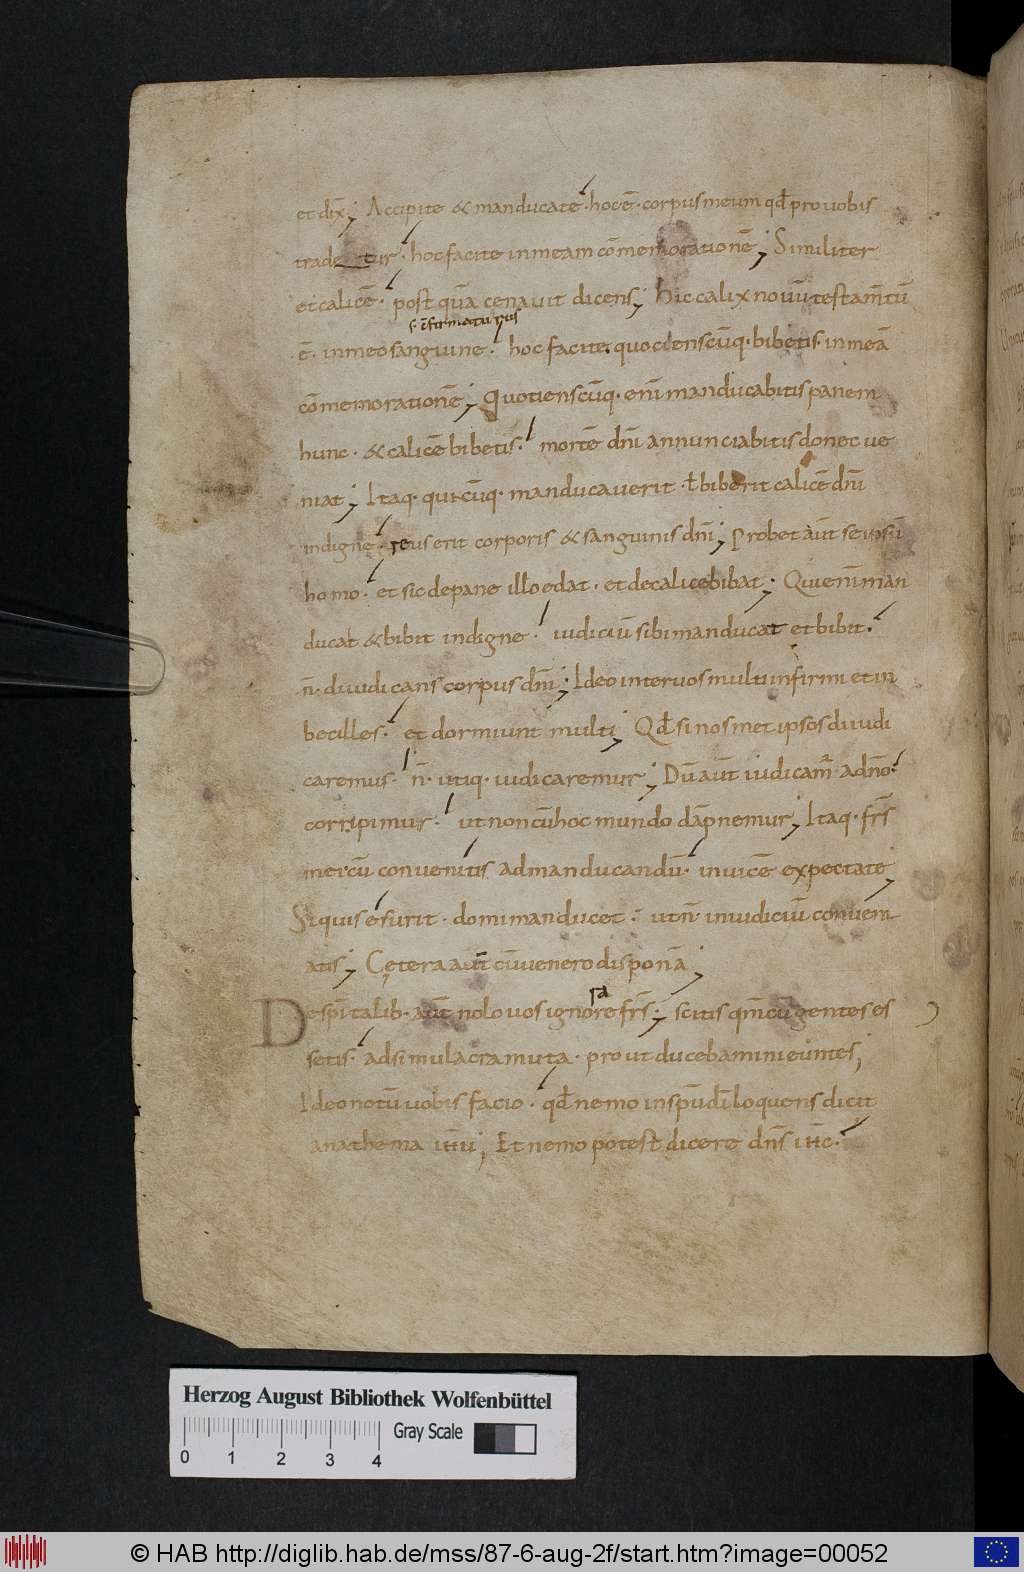 et dix̄; Accipite & manducate· hoc ē· corpus meum qđ pro uobis
tradetur· hoc facite in meam cōmemorationē; Similiter
et calicē· post quā cenauit dicens; Hic calix nouū testam̄tū
s· cōfirmaturus
ē· in meo sanguine· hoc facite quotienscūq· bibetis· in meā
cōmemorationē; Quotienscūq· enī manducabitis panem
hunc· & calicē bibetis· mortē dn̄i annunciabitis donec ue
niat; Itaq· quicūq· manducauerit· ł biberit calicē dn̄i
indigne· reus erit corporis & sanguinis dn̄i; Probet aūt seipsū
homo· et sic de pane illo edat· et de calice bibat; Qui enī man
ducat & bibit indigne· iudiciū sibi manducat et bibit·
n̄· diiudicans corpus dn̄i; Ideo inter uos multi infirmi et in
becilles· et dormiunt multi; Qđ si nosmet ipsos diiudi
caremus· n̄· utiq· iudicaremur; Dū aūt iudicam̄· a dn̄o·
corripimur· ut non cū hoc mundo dāpnemur; Itaq· fr̄s
mei cū conuenitis ad manducandū· inuicē expectate;
Siquis esurit· domi manducet· ut n̄· in iudiciū conueni
atis; Cętera aūt cū uenero disponā;
ra
De spīitalib· aūt nolo uos ignore fr̄s; scitis qm̄ cū gentes es
setis· ad simulacra muta· prout ducebamini euntes;
Ideo notū uobis facio· qđ nemo in sp̄u dī loquens dicit
anathema ih̄u; Et nemo potest dicere dn̄s ih̄c·
Herzog August Bibliothek Wolfenbüttel
Gray Scale
0 1 2 3 4
© HAB http://diglib.hab.de/mss/87-6-aug-2f/start.htm?image=00052